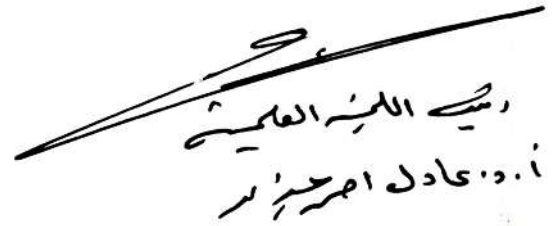 رئيس اللجنة العلمية
أ.د. عادل احمر